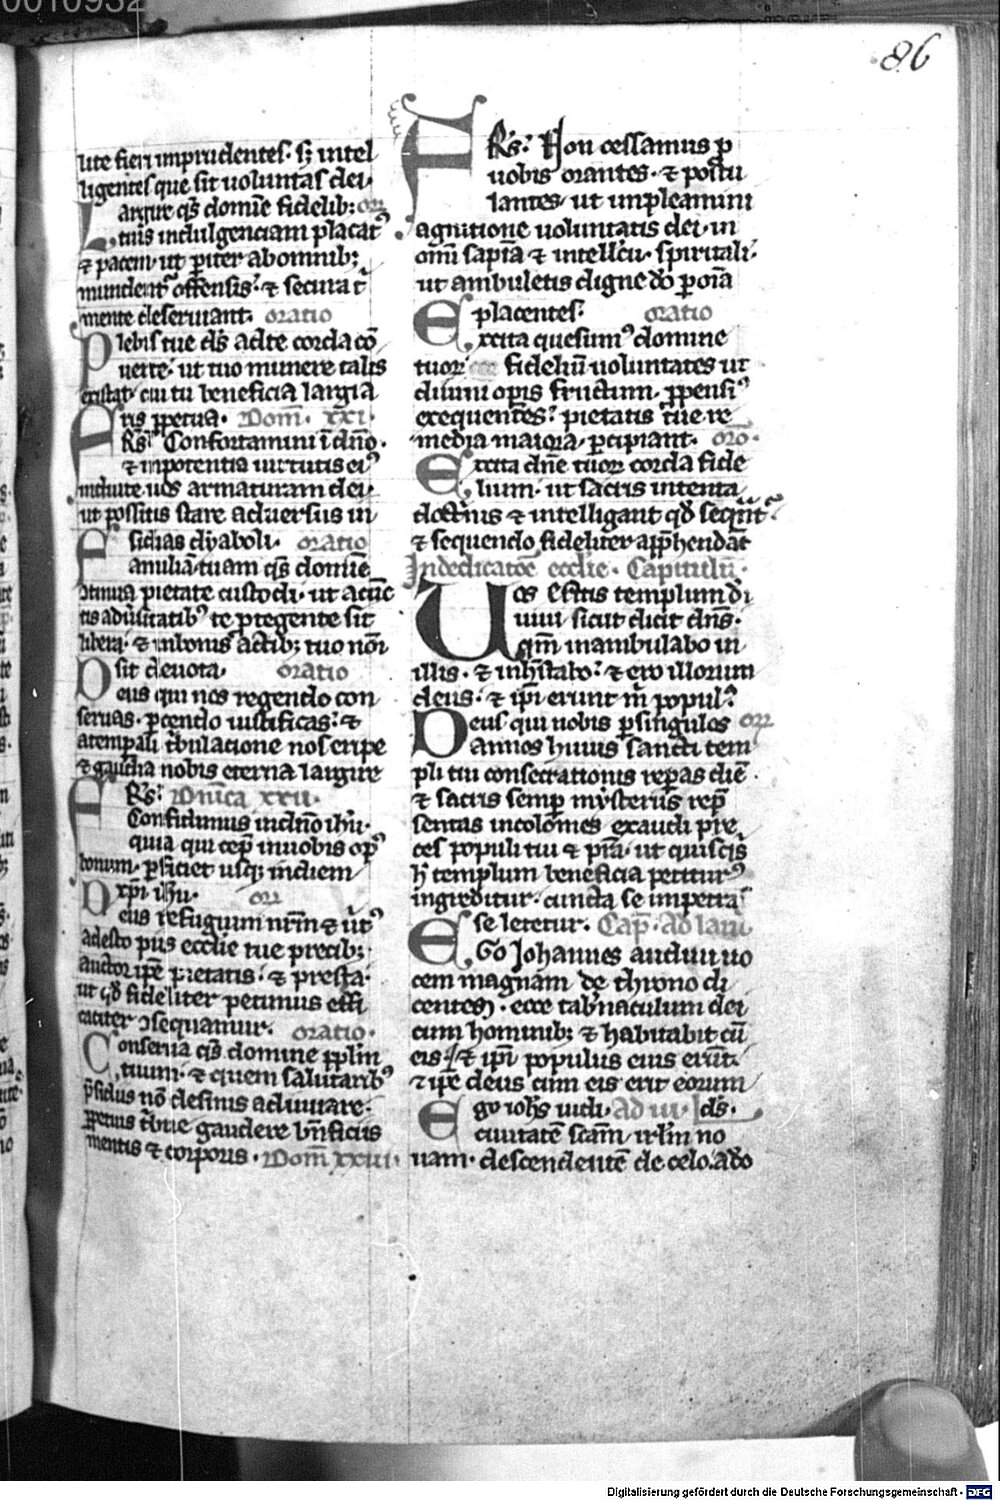 86
lite fieri imprudentes. sꝫ intel
ligentes que sit uoluntas dei.
Largire q̄s domīe fidelibꝫ or̄
tuis indulgenciam placatꝰ
⁊ pacem. ut pariter ab omnibꝫ
mundent᷑ offensis. ⁊ secura t̄
mente deseruiant. oratio
Plebis tue ds̄ ad te corda cō
uerte. ut tuo munere talis
existat. cui tu beneficia largia
ris ꝑpetua. Dom̄. xxi.
FRs̄. Confortamini ī dn̄o.
⁊ in potentia uirtutis eiꝰ
induite uos armaturam dei.
ut possitis stare aduersus in
sidias dyaboli. oratio
Familiā tuam q̄s domīe
ↄtinua pietate custodi. ut a cūc
tis aduersitatibꝰ te ptegente sit
libera. ⁊ in bonis actibꝫ tuo nōi
sit deuota. oratio
Deus qui nos regendo con
seruas. ꝑcendo iustificas. ⁊
a tempali tͥbulacione nos eripe
⁊ gaudia nobis eterna largire
FRs̄. Dn̄ica xxii.
Confidimus in dn̄o ihū.
quia qui cep̄ in uobis opꝰ
bonum. ꝑficiet usqꝫ in diem
xp̄i ihū. or̄
Deus refugium nr̄m ⁊ uirtꝰ
adesto pius ecclie tue precibꝫ
auctor ipē pietatis. ⁊ presta.
ut qd̄ fideliter petimus effi
caciter ↄsequamur. oratio.
Conserua q̄s domine pplm̄
tuum. ⁊ quem salutaribꝰ
p̄sidiis nō desinis adiuuare.
ꝑpetuis tͥbue gaudere bn̄ficiis
mentis ⁊ corporis. Dom̄ xxiii.
FRs̄. Non cessamus p
uobis orantes. ⁊ postu
lantes. ut impleamini
agnitione uoluntatis dei. in
om̄i sapīa ⁊ intellcū. spirituali.
ut ambuletis digne dō ꝑ oīa
placentes. oratio
Excita quesumꝰ domine
tuoꝝ fidelium uoluntates ut
diuini opis fructum. ꝓpensiꝰ
exequentes. pietatis tue re
media maiora. ꝑcipiant. or̄o.
Excita dn̄e tuoꝝ corda fide
lium. ut sacris intenta
doct̓nis ⁊ intelligant qd̄ sequnt᷑
⁊ sequendo fideliter app̄hendāt
In dedicatōe ecclie. Capitulū.
Uos estis templum di
uiui. sicut dicit dn̄s.
qm̄ inambulabo in
illis. ⁊ inhītabo. ⁊ ero illorum
deus. ⁊ ip̄i erunt m̄ populꝰ
Deus qui nobis ꝑ singulos or̄
annos huius sancti tem
pli tui consecrationis repas diē.
⁊ sacris semꝑ mysteriis repͤ
sentas incolōmes. exaudi pre
ces populi tui ⁊ pͣra. ut quisqͥs
h̄ templum beneficia petiturꝰ
ingreditur. cuncta se impetra
se letetur. Cap̄. Ad laud
EGo Johannes audiui uo
cem magnam de throno di
centem. ecce tabn̄aculum dei
cum hominibꝫ ⁊ habitabit cū
eis. ⁊ ip̄i populus eius erūt.
⁊ ipē deus cum eis erit eorum
Ego ioh̄s uidi. Ad iii. ds̄.
ciuitatē sc̄am irl̄m no
uam. descendentē de celo. a dō
Digitalisierung gefördert durch die Deutsche Forschungsgemeinschaft - DFG